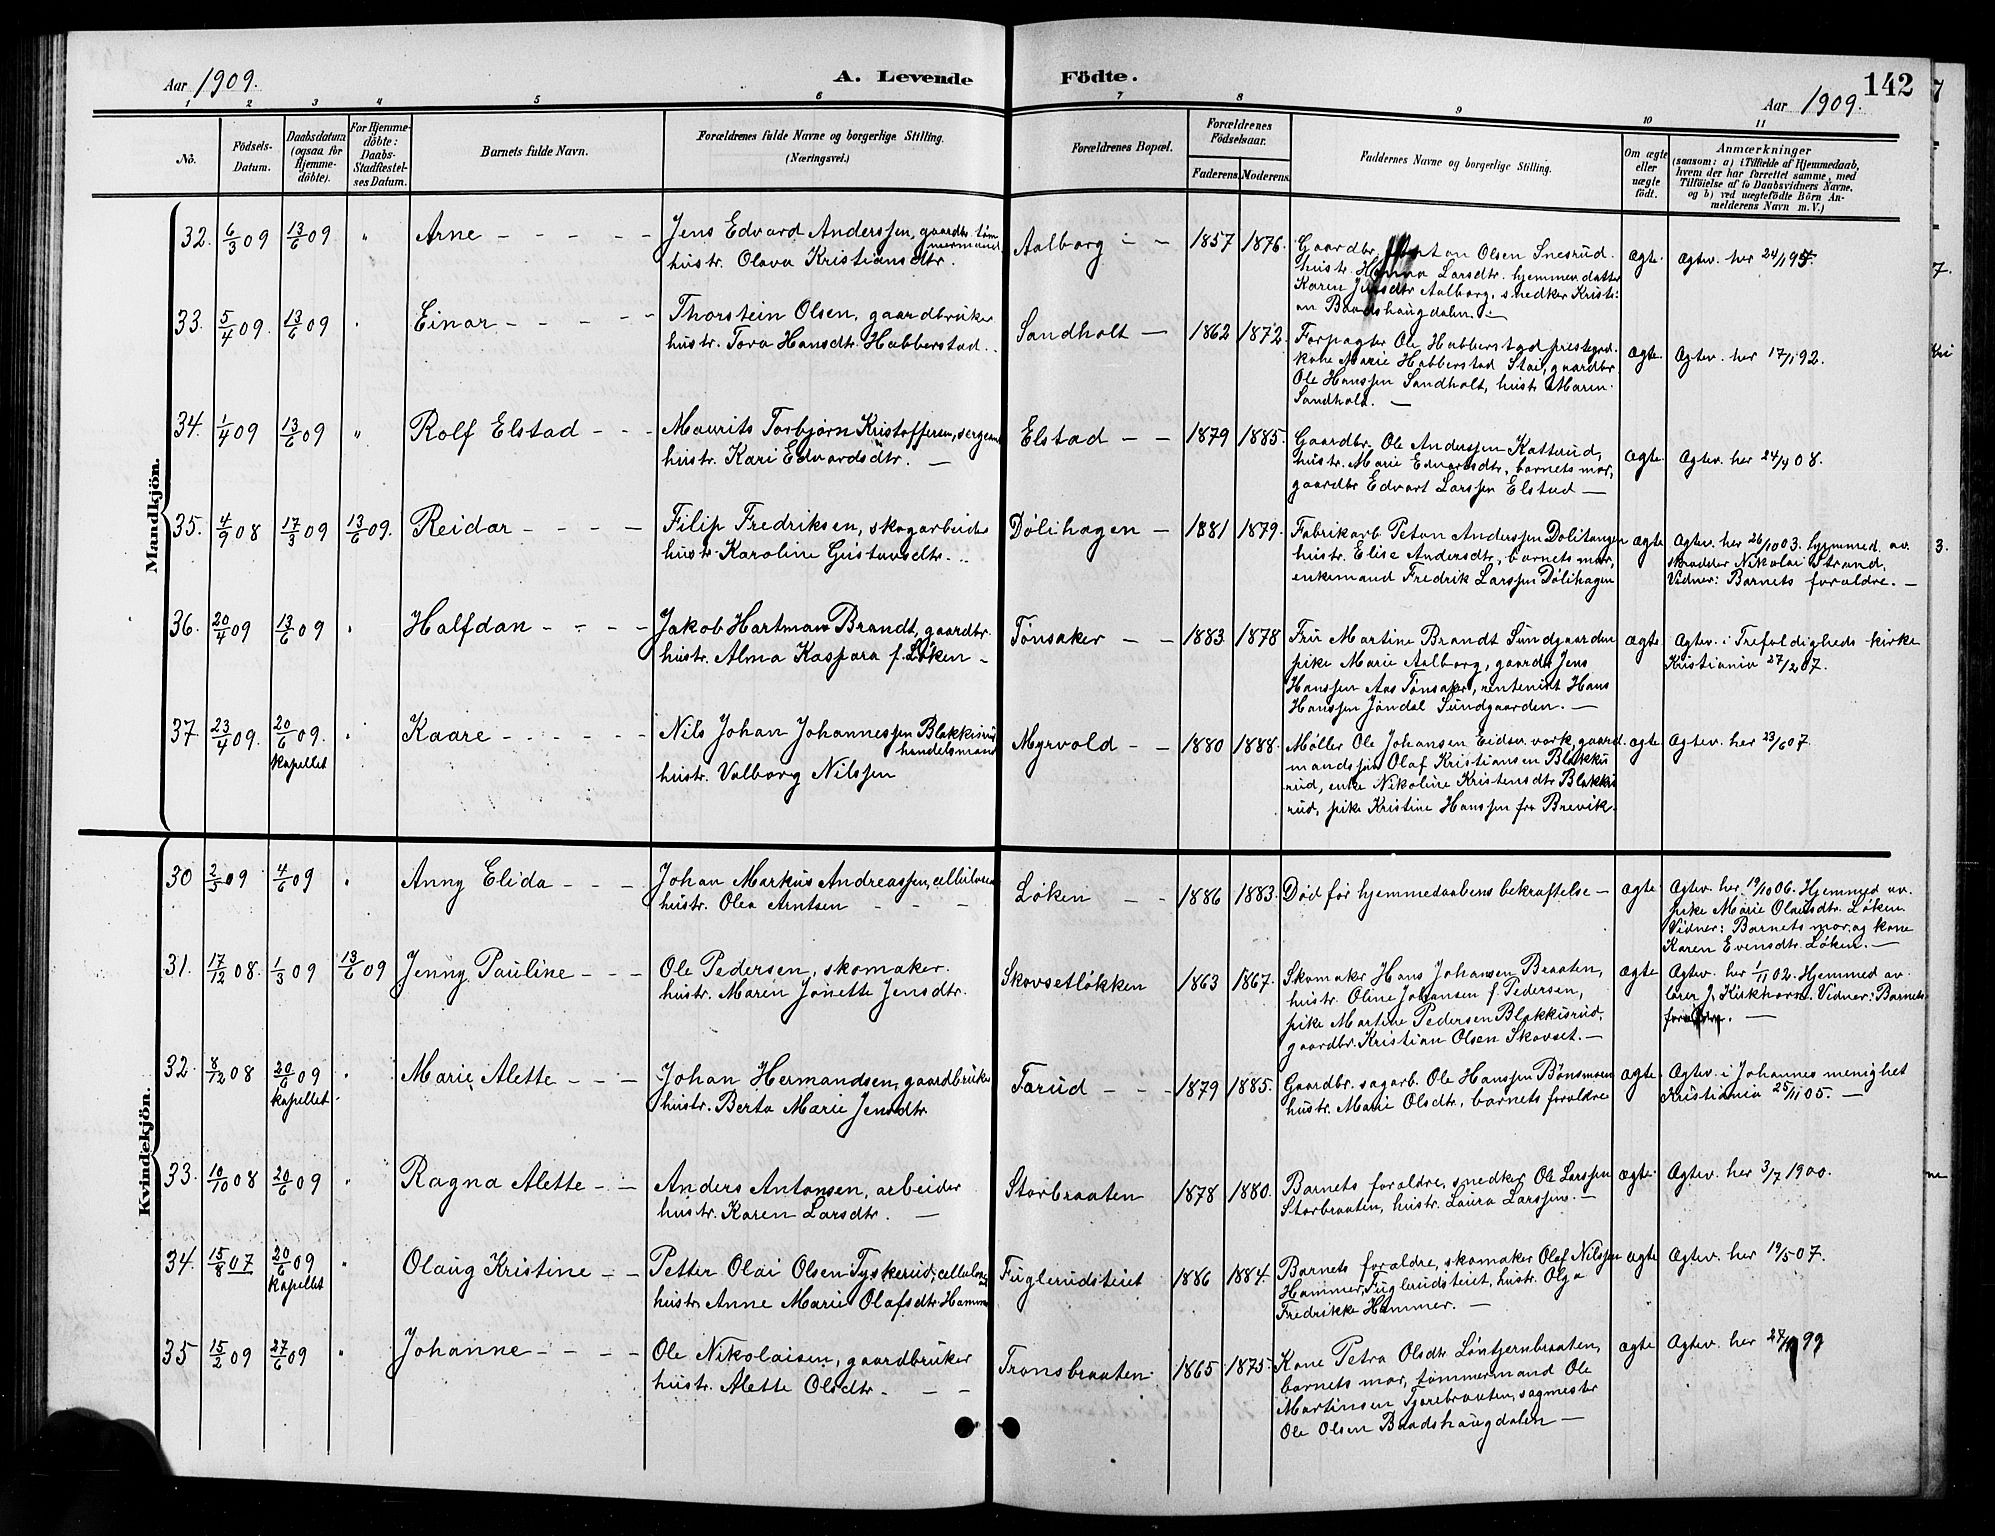 Aar 1909.
A. Levende Födte.
142
Aar 1909.
1 2 3 4 5 6 7 8 9 10 11
No.
Födsels-
Datum.
Daabsdatum
(ogsaa for
Hjemme-
döbte).
For Hjemme-
döbte:
Daabs-
Stadfæstel-
ses Datum.
Barnets fulde Navn.
Forældrenes fulde Navne og borgerlige Stilling.
(Næringsvei.)
Forældrenes Bopæl.
Forældrenes
Födselsaar.
Faderens. Moderens.
Faddernes Navne og borgerlige Stilling.
Om ægte
eller
uægte
födt.
Anmærkninger
(saasom: a) i Tilfælde af Hjemmedaab,
hvem der har forrettet samme, med
Tilföielse af to Daabsvidners Navne,
og b) ved uægtefödte Börn An-
melderens Navn m. V.)
Mandkjön.
32. 6/3 09 13/6 09 " Arne - - - - -
Jens Edvard Anderssen, gaardbr. töm
mermand
hustr. Olava Kristiansdtr.
Aalborg - - 1857 1876.
Gaardbr. Anton Olsen Snesrud.
hustr. Hanna Larsdtr. hjemmev. datter
Karen Jensdtr Aalborg, snedker Kristi-
an Baadshaugdalen. -
ægte. Ægtev. her
33. 5/4 09. 13/6 09 " Einar - - - - -
Thorstein Olsen, gaardbruker
hustr. Tora Hansdtr. Habberstad.
Sandholt - 1862 1872
Forpagter Ole Habberstad prestegrd.
kone Marie Habberstad Stai, gaardbr
Ole Hanssen Sandholt, hustr Maren
Sandhold. -
ægte. Ægtev. her 17/1 92.
34. 1/4 09 13/6 09 " Rolf Elstad - - -
Maurits Torbjørn Kristoffersen, sergeant
hustr. Kari Edvardsdtr. -
Elstad - - 1879 1885.
Gaardbr. Ole Anderssen Katterud,
hustr. Marie Edvartsdtr, barnets mor,
gaardbr Edvart Larssen Elstad -
ægte. Ægtev. her 24/4 08.
35. 4/9 08 17/3 09 13/6 09. Reidar - - - -
Filip Fredriksen, skogarbeider
hustr. Karoline Gustavsdtr. -
Dølihagen - 1881 1879.
Fabrikarb Petan Anderssen Dolitangen
hustr. Elise Andersdtr, barnets mor,
enkemand Fredrik Larssen Dølihagen
ægte Ægtev. her 26/10 03. hjemmed. av
skrædder Nikolai Strand.
Vidner: Barnets forældre. -
36. 20/4 09 13/6 09 " Halfdan - - - -
Jakob Hartman Brandt, gaardbr.
hustr. Alma Kaspara f. Løken -
Tønsaker - - 1883 1878
Fru Martine Brandt Sundgaarden
pike Marie Aalborg, gaardbr Jens
Hanssen Aas Tønsaker, rentenist Hans
Hanssen Jøndal Sundgaarden. -
ægte Ægtev. i Trefoldigheds kirke
Kristiania 27/2 07.
37 23/4 09. 20/6 09. " Kaare - - - - -
kapellet
Nils Johan Johannessen Blekkisrud
handelsmand
hustr. Valborg Nilssen
Myrvold - - 1880 1888.
Møller Ole Johansen Eidsv. verk, gaard
mandssøn Olaf Kristiansen Blakkis
rud, enke Nikoline Kristensdtr Blakkis
rud, pike Kristine Hanssen fra Brevik.
ægte Ægtev. her 23/6 07.
Kvindekjön.
30 2/5 09 4/6 09 " Anny Elida - - -
Johan Markus Andreassen,
hustr. Olea Arntsen - - -
Løken - - 1886 1883.
Død før hjemmedaabens bekræftelse -
ægte. Ægtev. her 19/10 06. Hjemmed av.
pike Marie Olausdtr. Løken
Vidner: Barnets mor og kone
Karen Evensdtr. Løken. -
31. 17/12 08. 1/3 09 13/6 09 Jenny Pauline - - -
Ole Pedersen, skomaker.
hustr. Maren Jonette Jensdtr.
Skovsetløkken 1863 1867.
Skomaker Hans Johansen Braaten,
hustr. Oline Johansen f. Pedersen,
pike Martine Pedersen Blakkisrud,
gaardbr. Kristian Olsen Skovset. -
ægte Ægtev. her 1/11 02. Hjemmed av
lærer J. Kirkhorn. Vidner: Barnets
forældre. -
32. 8/12 08 20/6 09 " Marie Alette - - -
kapellet
Johan Hermandsen, gaardbruker
hustr. Berta Marie Jensdtr
Tarud - - - 1879 1885.
Gaardbr. sagarb. Ole Hanssen Bønsmoen
hustr. Marie Olsdtr, barnets forældre
ægte. Ægtev. i Johannes menighet
Kristiania 25/11 05. -
33. 10/10 08 20/6 09 " Ragna Alette - -
Anders Antonsen, arbeider
hustr. Karen Larsdtr. -
Storbraaten 1878 1880.
Barnets forældre, snedker Ole Larssen
Storbraaten, hustr. Laura Larssen. -
ægte. Ægtev. her 3/7 1900.
34. 15/8 07 20/6 09 " Olaug Kristine - -
kapellet
Petter Olai Olsen Tyskerud,
hustr. Anne Marie Olafsdtr. Hammer
Fuglerudsteiet 1886 1884.
Barnets forældre, skomaker Olaf Nilssen
Hammer, Fuglerudsteiet, hustr. Olga
Fredrikke Hammer. -
ægte Ægtev. her 19/5 07.
35 15/2 09 27/6 09 " Johanne - - - -
Ole Nikolaisen, gaardbruker
hustr. Alette Olsdtr - - -
Transbraaten 1865 1875.
Kone Petra Olsdtr Løntjernbraaten,
barnets mor, tømmermand Ole
Martinsen Tjærebraaten, sagmester
Ole Olsen Baadshaugdalen -
ægte Ægtev. her